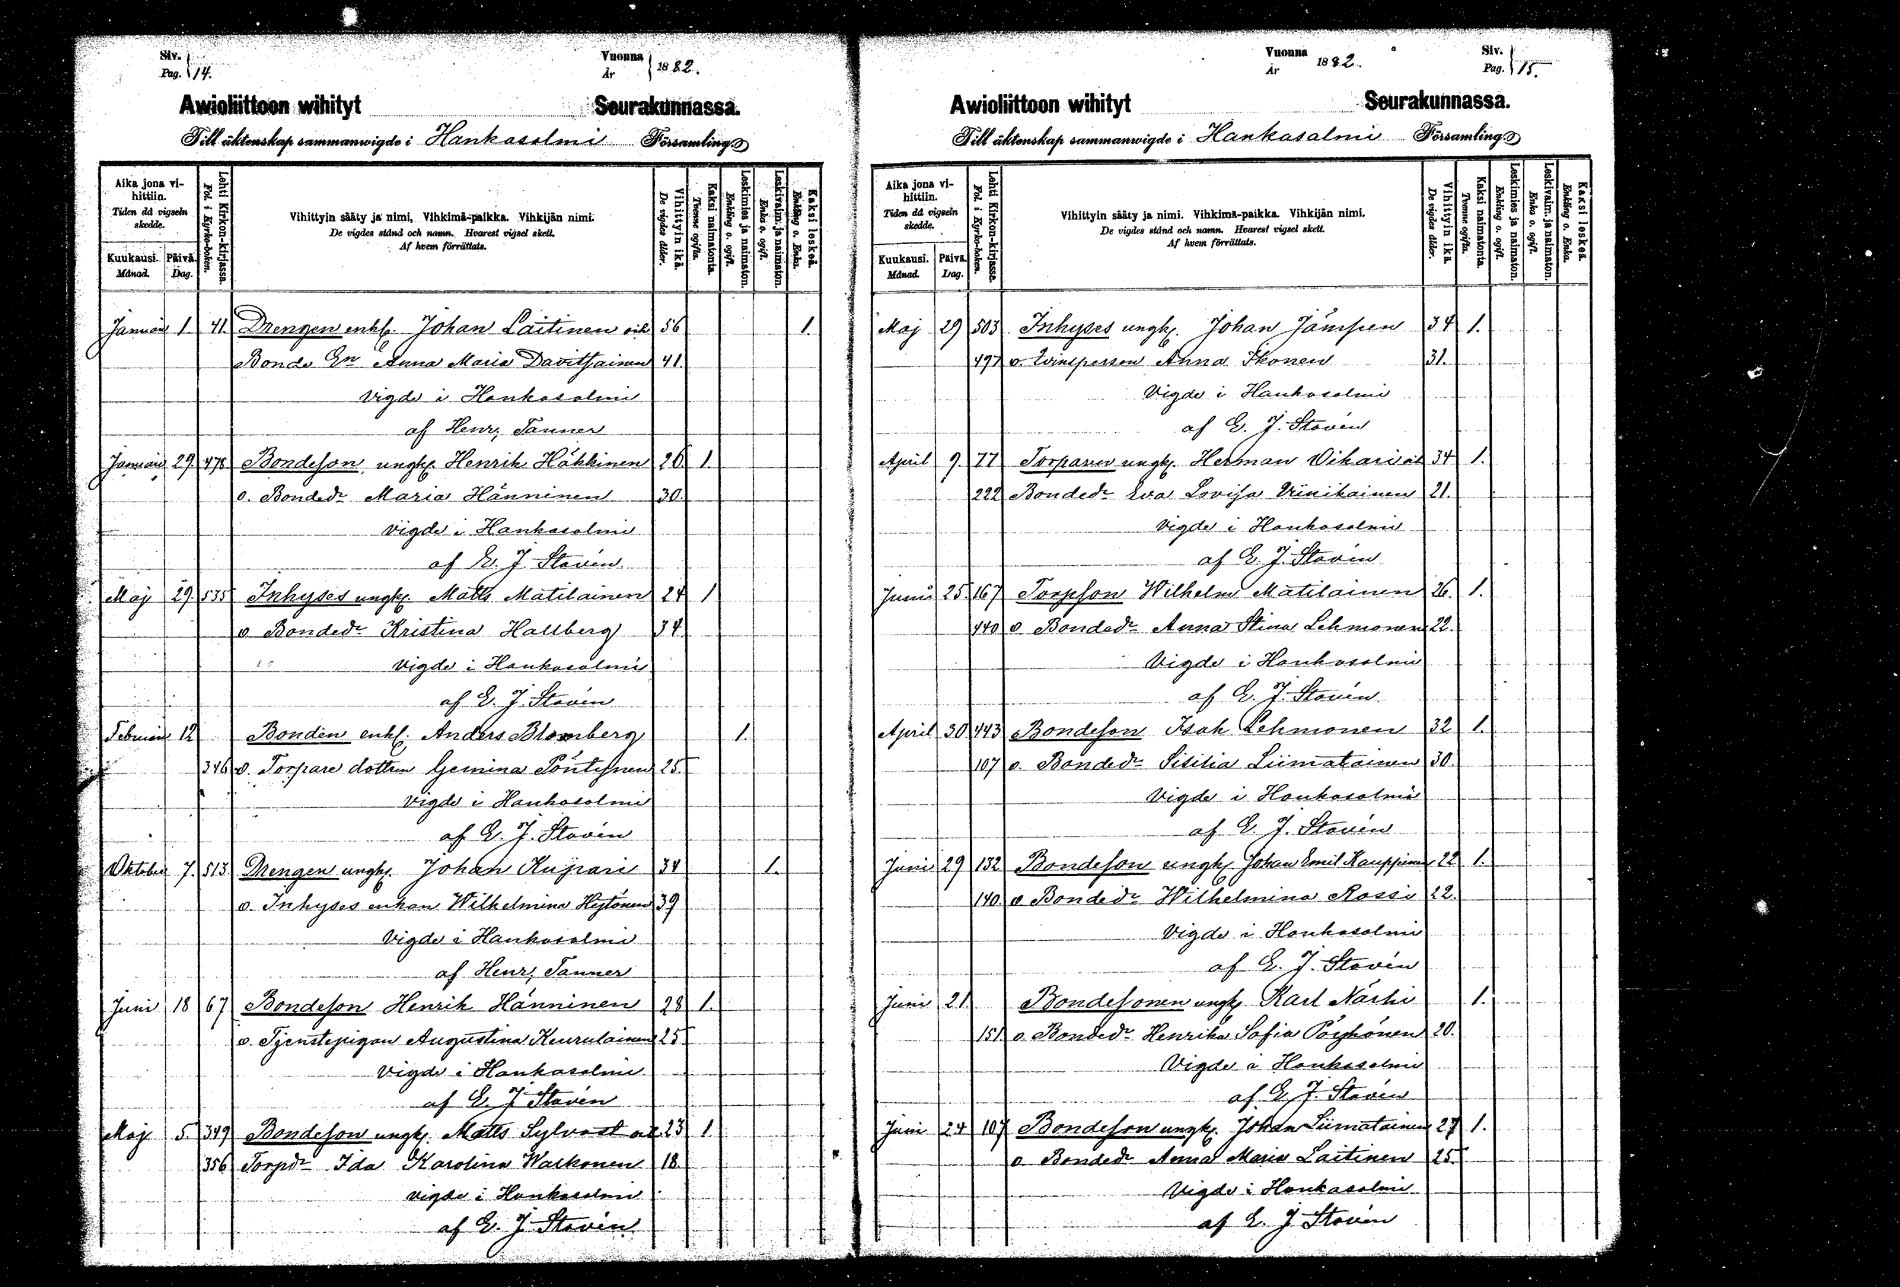 Siv.
Pag. 14.
Vuonna
År 1882.
Awioliittoon wihityt Seurakunnassa.
Till äktenskap sammanwigde i Hankasalmi Församling
Aika jona vihittiin.
Tiden då vigseln skedde.
Kuukausi. Månad.
Päivä. Dag.
Lehti Kirkon-kirjassa.
Fol. i Kyrko-boken.
Vihittyin sääty ja nimi, Vihkimä-paikka. Vihkijän nimi.
De vigdes stånd och namn. Hvarest vigsel skett.
Af hvem förrättats.
Vihittyin ikä.
De vigdes ålder.
Kaksi naimatonta.
Tvenne ogifta.
Leskimies ja naimaton.
Enkling o. ogift.
Leskivaim. ja naimaton.
Enka o. ogift.
Kaksi leskeä.
Enkling o. Enka.
Januari 1. 41. Drengen enkl. Johan Laitinen och 56 1.
Bonde En Anna Maria Davitsainen 41.
vigde i Hankasalmi
af Henr. Tanner
Januari 29. 478 Bondeson ungk. Henrik Häkkinen 26. 1.
o. Bondedr Maria Hänninen 30.
vigde i Hankasalmi
af E. J. Stavén
Maj 29. 535 Inhyses ungk. Matts Matilainen 24 1
o Bondedr Kristina Hallberg 34
vigde i Hankasalmi
af E. J. Stavén
Februari 12 Bonden enkl. Anders Blomberg 1.
346 o. Torpare dottren Gemina Pöntynen 25.
vigde i Hankasalmi
af E. J. Stavén
Oktober 7. 513 Drengen ungk. Johan Kupari 34 1.
o. Inhyses enkan Wilhelmina Hytönen 39
vigde i Hankasalmi
af Henr. Tanner
Juni 18 67 Bondeson Henrik Hänninen 28 1.
o. Tjenstepigan Augustina Keurulainen 25
vigde i Hankasalmi
af E. J. Stavén
Maj 5. 349 Bondeson ungk. Matts Sylvast och 23 1
356 Torpdr Ida Karolina Walkonen 18.
vigde i Hankasalmi
af E. J. Stavén
Vuonna
År 1882.
Siv.
Pag. 15.
Awioliittoon wihityt Seurakunnassa.
Till äktenskap sammanwigde i Hankasalmi Församling
Aika jona vihittiin.
Tiden då vigseln skedde.
Kuukausi. Månad.
Päivä. Dag.
Lehti Kirkon-kirjassa.
Fol. i Kyrko-boken.
Vihittyin sääty ja nimi. Vihkimä-paikka. Vihkijän nimi.
De vigdes stånd och namn. Hvarest vigsel skett.
Af hvem förrättats.
Vihittyin ikä.
De vigdes ålder.
Kaksi naimatonta.
Tvenne ogifta.
Leskimies ja naimaton.
Enkling o. ogift.
Leskivaim. ja naimaton.
Enka o. ogift.
Kaksi leskeä.
Enkling o. Enka.
Maj 29 503 Inhyses ungk. Johan Jämsen 34 1.
497 o Anna Ikonen 31.
vigde i Hankasalmi
af E. J. Stavén
April 9. 77 Torparen ungk. Herman Vikari och 34 1.
222 Bondedr Eva Lovisa Viinikainen 21.
vigde i Hankasalmi
af E. J. Stavén
Juni 25. 167 Torpson Wilhelm Matilainen 26. 1.
440 o Bondedr Anna Stina Lehmonen 22.
vigde i Hankasalmi
af E. J. Stavén
April 30 443 Bondeson Isak Lehmonen 32 1.
107 o. Bondedr Sisilia Liimatainen 30.
vigde i Hankasalmi
af E. J. Stavén
Juni 29 132 Bondeson ungk. Johan Emil Kauppinen 22 1.
140 o Bondedr Wilhelmina Rossi 22.
vigde i Hankasalmi
af E. J. Stavén
Juni 21. Bondesonen ungk. Karl Närhi 1.
151. o. Bondedr Henrika Sofia Pöyhönen 20.
vigde i Hankasalmi
af E. J. Stavén
Juni 24 107 Bondeson ungk. Johan Liimatainen 27 1.
o Bondedr Anna Maria Laitinen 25.
vigde i Hankasalmi
af E. J. Stavén